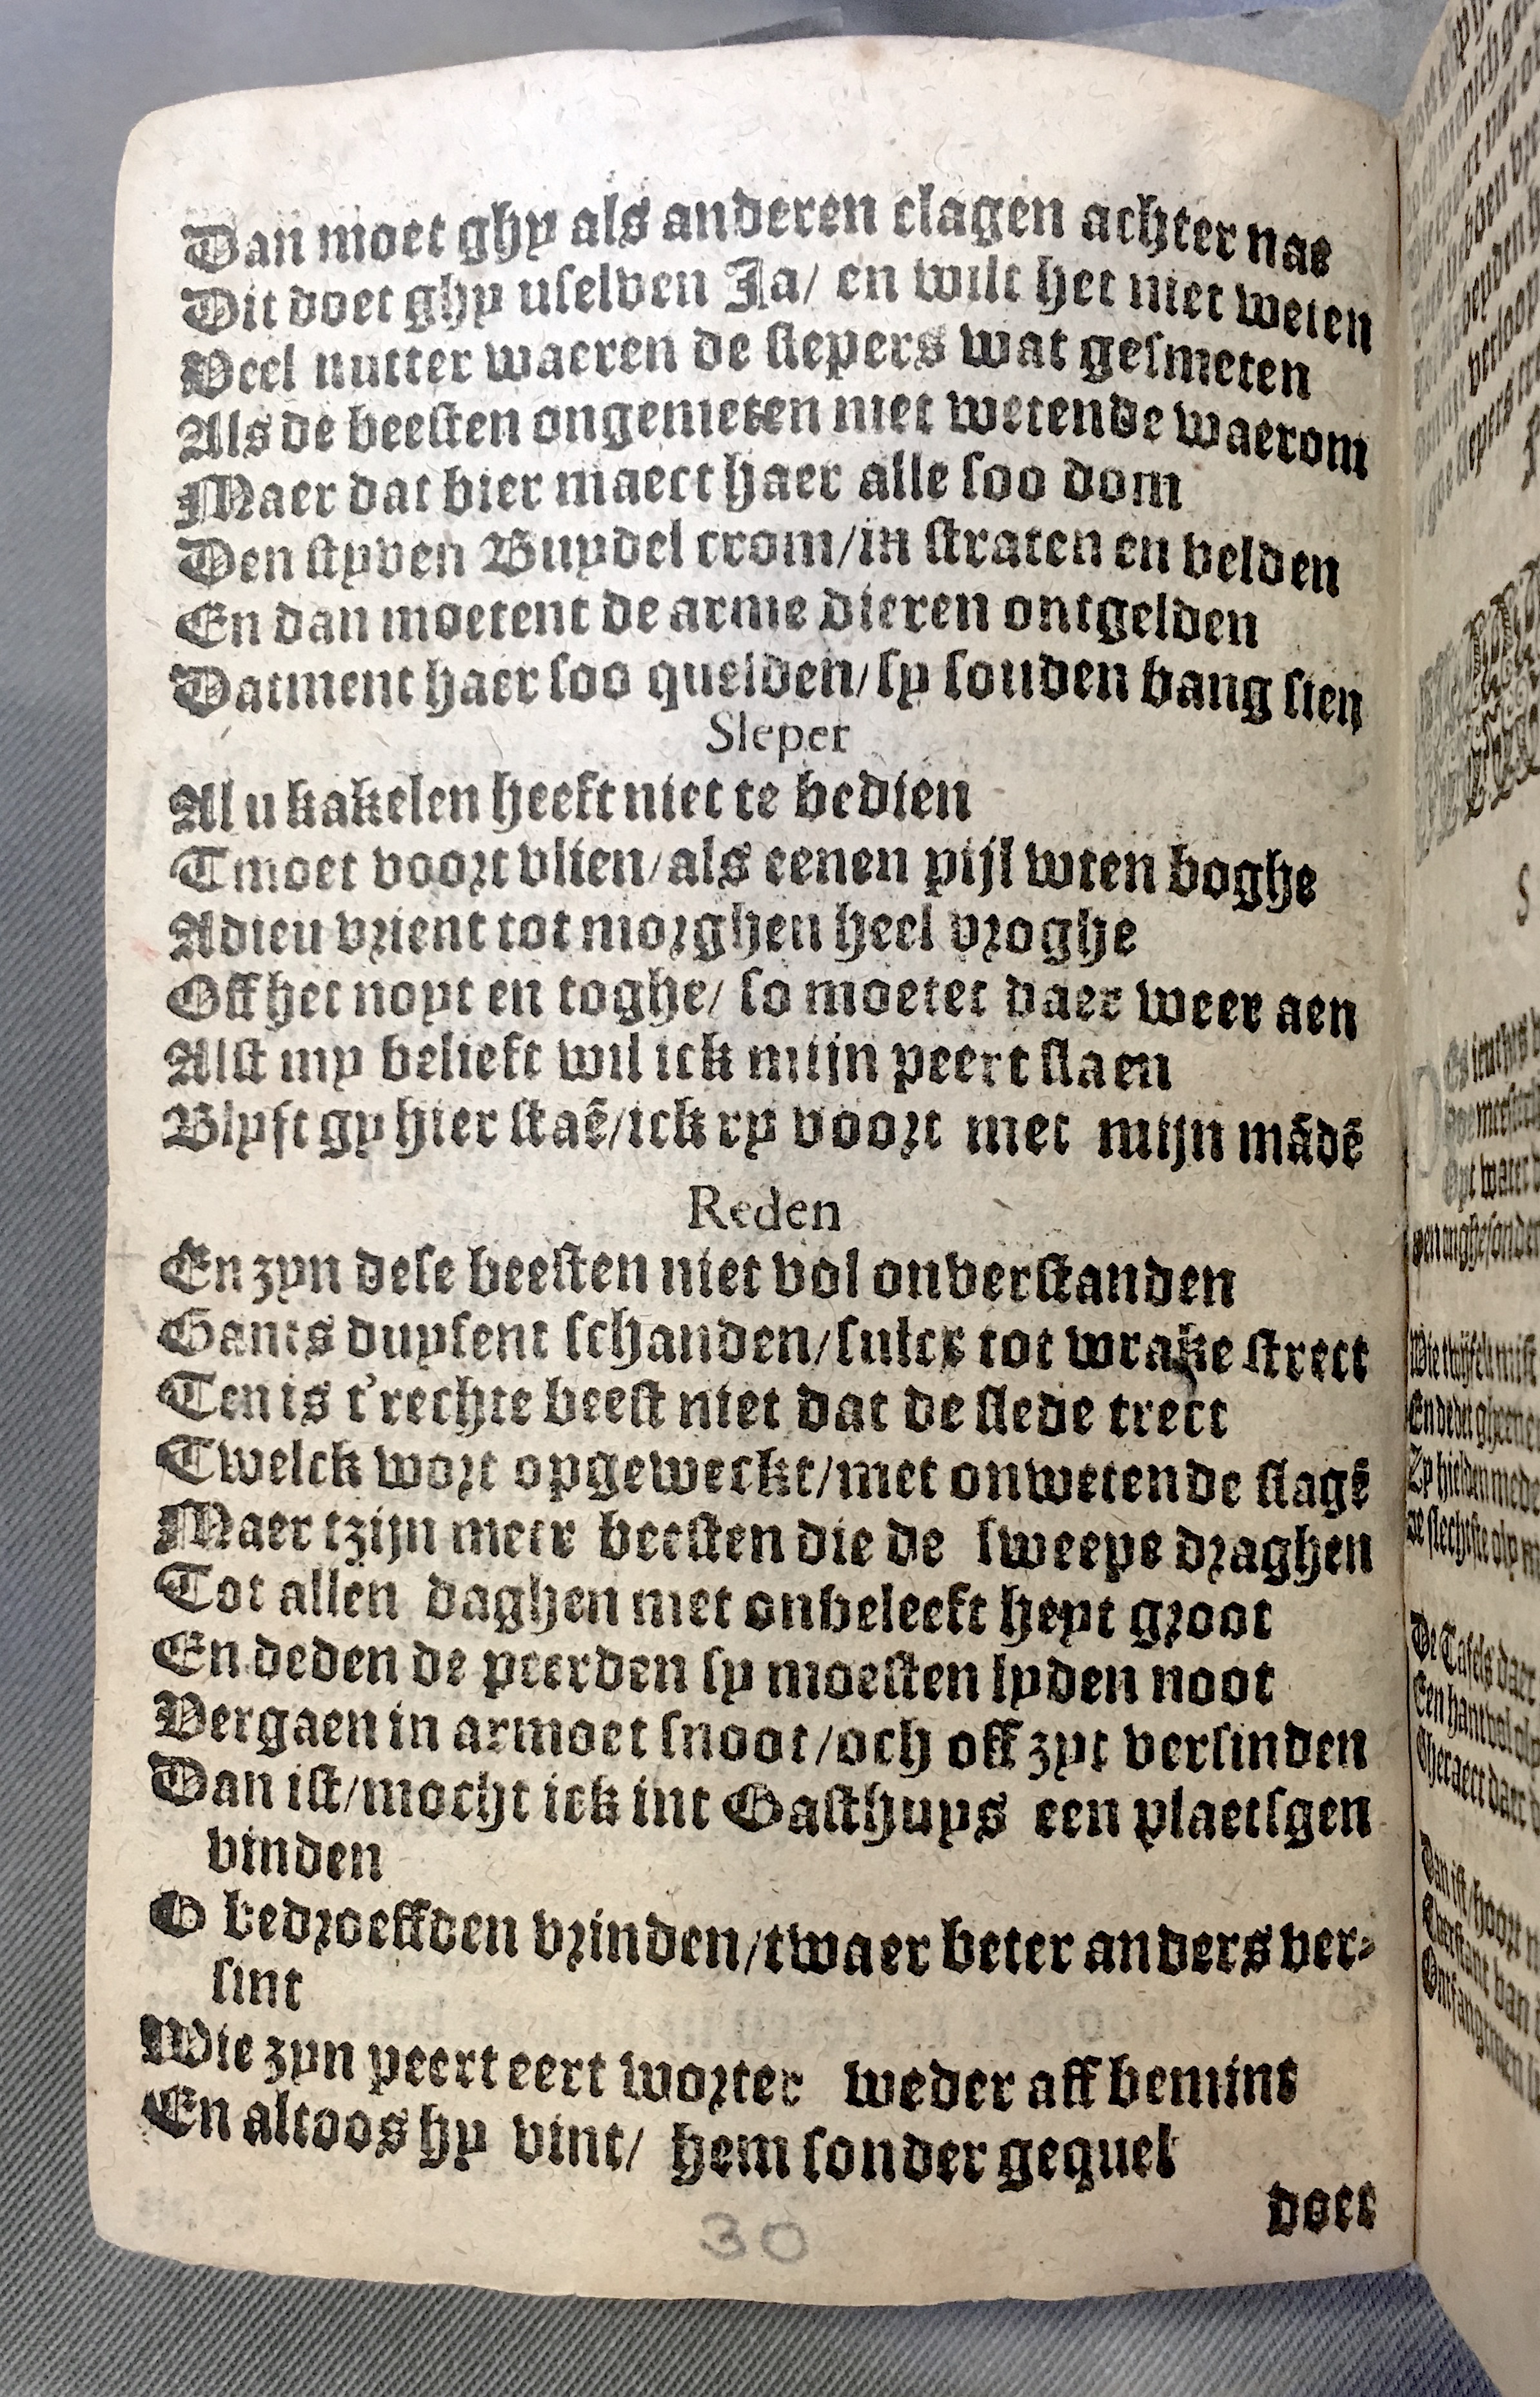 Dan moet ghy als anderen clagen achter nae
Dit doet ghy uselven Ja/ en wilt het niet weten
Veel nutter waeren de slepers wat gesmeten
Als de beesten ongemeten niet wetende waerom
Maer dat bier maect haer alle soo dom
Den styven Buydel crom/in straten en velden
En dan moetent de arme dieren ontgelden
Datment haer soo quelden/sy souden vang sien
Sleper
Al u kakelen heeft niet te bedien
Tmoet voort vlien/als eenen pijl wten boghe
Adieu vrient tot morghen heel vroghe
Off het noyt en toghe/ so moetet daer weer aen
Alst my belieft wil ick mijn peert slaen
Blyft gy hier staē/ick ry voort met mijn mādē
Reden
En zyn dese beesten niet vol onverstanden
Gants duysent schanden/sulcx tot wrake strect
Ten is t'rechte beest niet dat de slede trect
Twelck wort opgeweckt/met onwetende slagē
Maer tzijn meer beesten die de sweepe draghen
Tot allen daghen met onbeleeft heyt groot
En deden de peerden sy moesten lyden noot
Vergaen in armoet snoot/och off zyt versinden
Dan ist/mocht ick int Gasthuys een plaetsgen
vinden
O bedroeffden vrinden/twaer beter anders ver⸗
sint
Wie zyn peert eert worter weder aff bemint
En altoos hy vint/ hem sonder gequel
doet
30